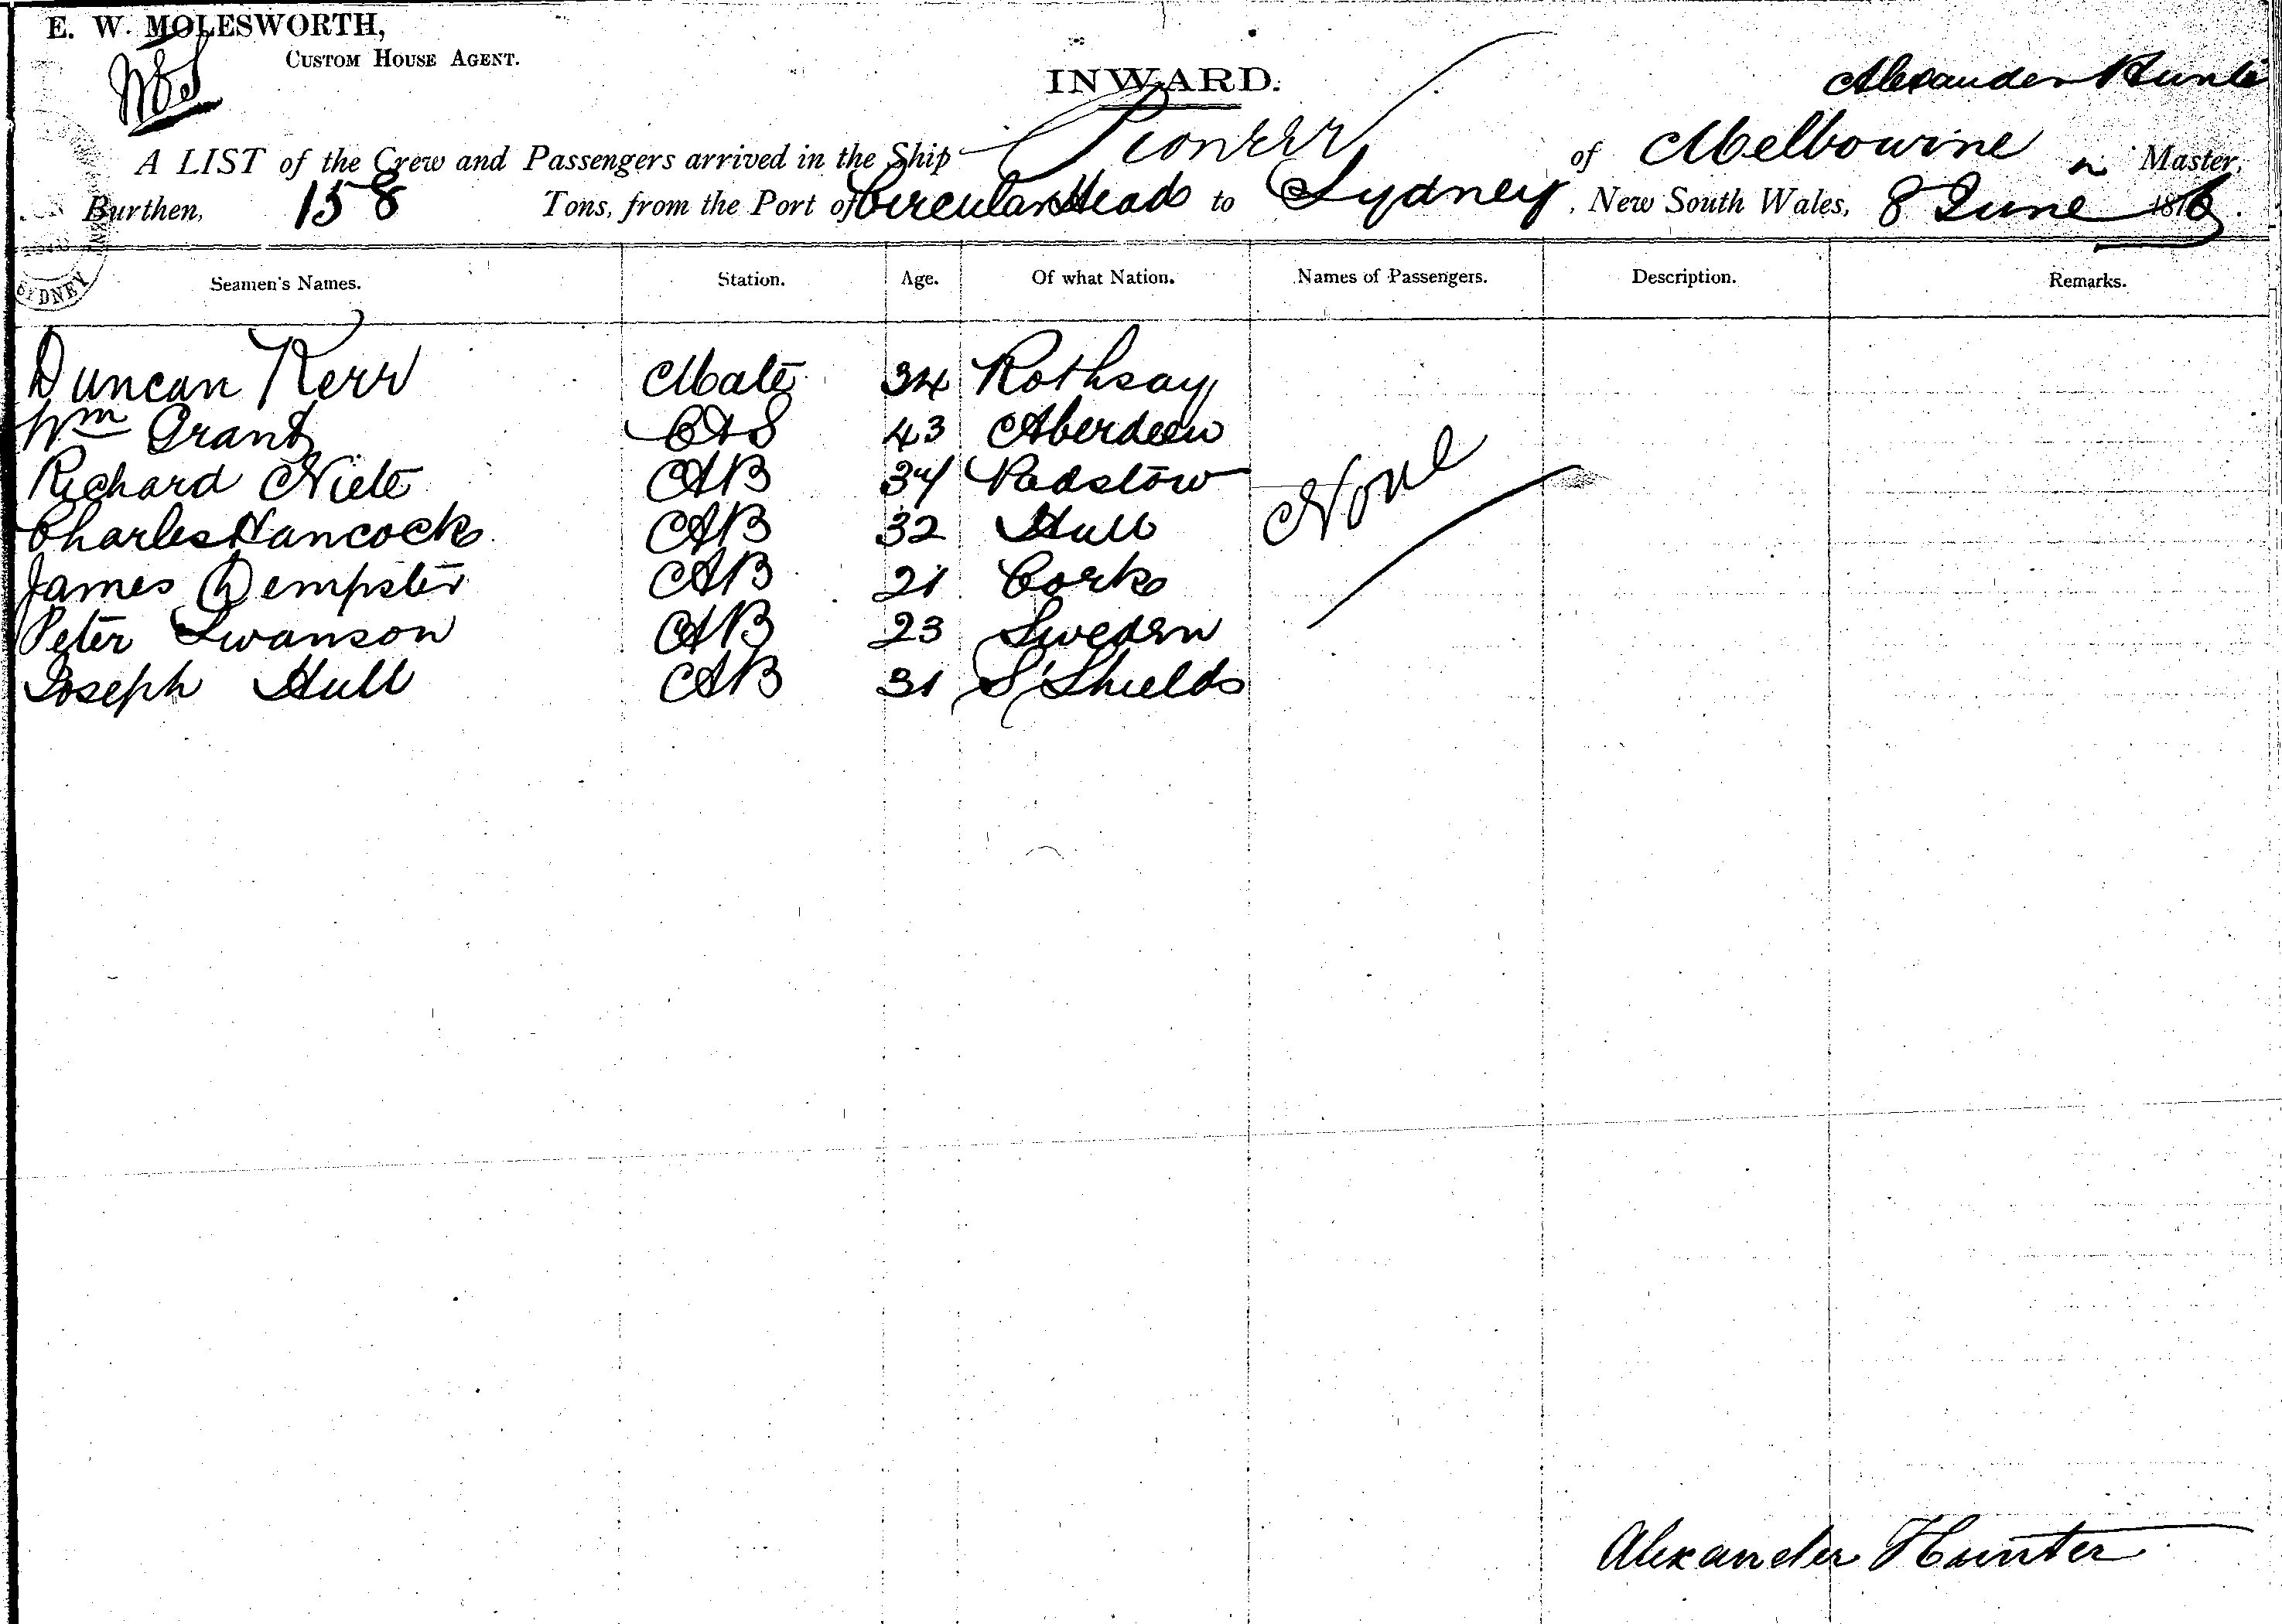 E. W. MOLESWORTH,
CUSTOM HOUSE AGENT.
INWARD.
Alexander Hunter
A LIST of the Crew and Passengers arrived in the Ship Pioneer of Melbourne Master,
Burthen, 158 Tons, from the Port of Circular Head to Sydney, New South Wales, 8 June 1876
SYDNEY
Seamen's Names. Station. Age. Of what Nation. Names of Passengers. Description. Remarks.
Duncan Kerr Mate 34 Rothsay
Wm Grant C&S 43 Aberdeen
Richard AB 34 Padstow None
Charles Hancock AB 32 Hull
James Dempster AB 21 Cork
Peter Swanson AB 23 Sweden
Joseph Hull AB 31 S Shields
Alexander Hunter